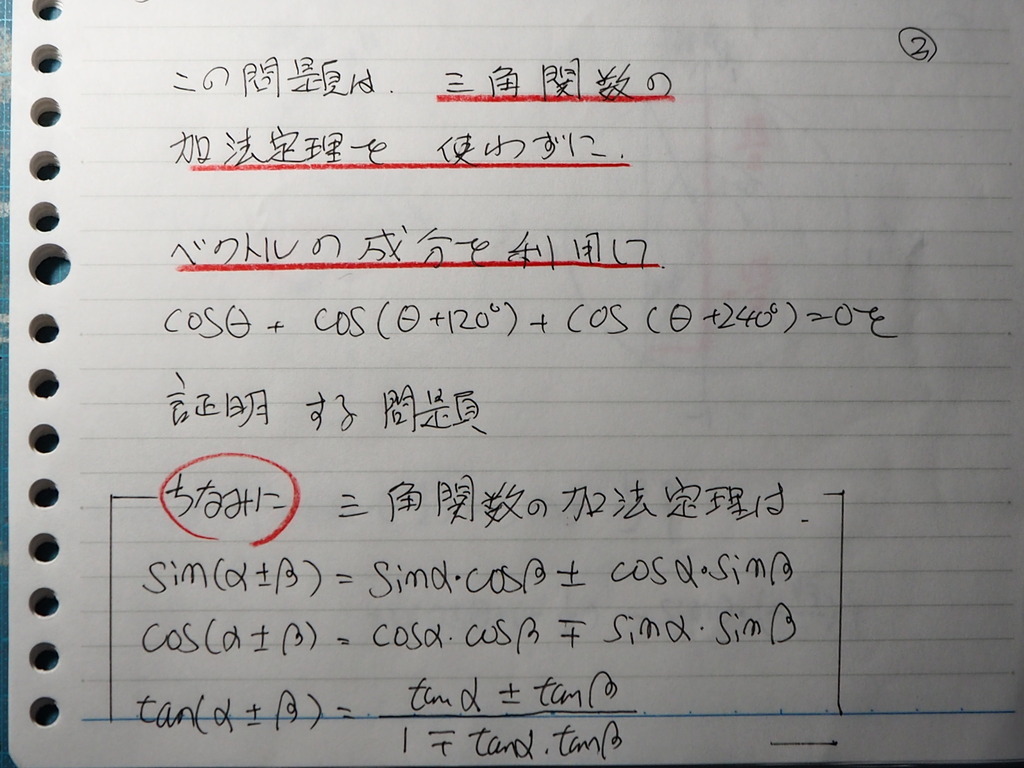 ②
この問題は、三角関数の
加法定理を 使わずに、
ベクトルの成分を利用して
cosθ + cos(θ+120°) + cos(θ+240°)=0を
証明する問題
ちなみに 三角関数の加法定理は、
sin(α±β) = sinα・cosβ ± cosα・sinβ
cos(α±β) = cosα・cosβ ∓ sinα・sinβ
tan(α±β) = tanα ± tanβ / 1 ∓ tanα・tanβ